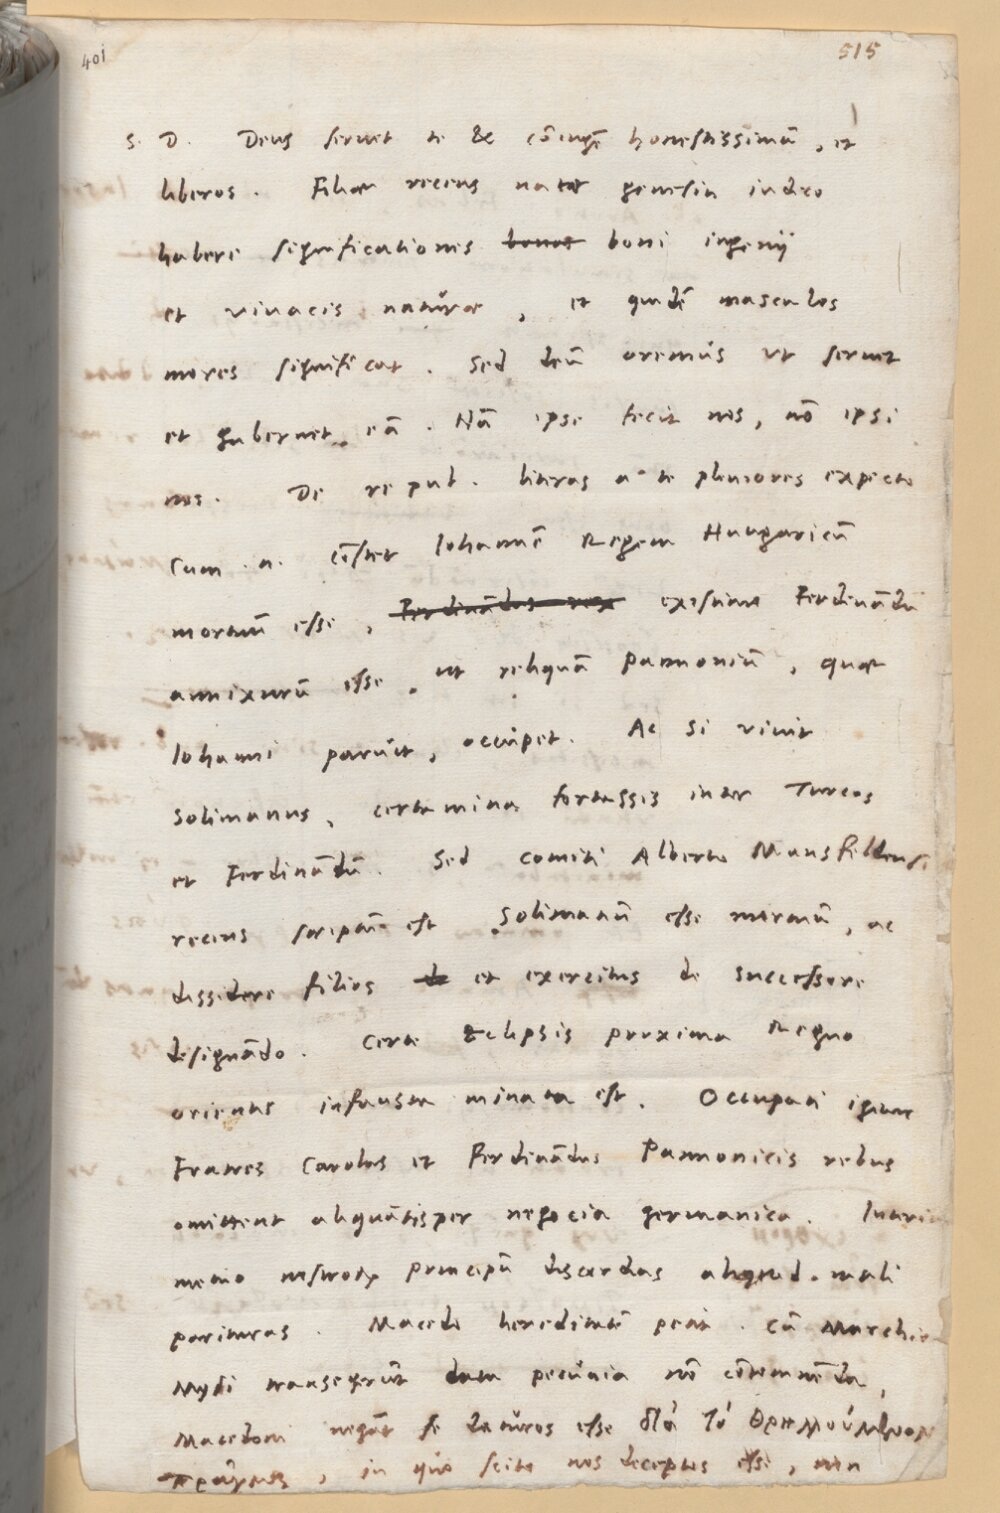 401
515
S. D. Deus servet te & cōiugē honestissimā, et
liberos. Filiae recens natae genesin iudico
habere significationes bonae boni ingenij
et vivacis naturae, et quidē masculos
mores significat. Sed deū oremus ut servet
et gubernet eā. Nā ipse fecit nos, nō ipsi
nos. De repub. literas a te pleniores expecto
Cum .n. cōstet Iohannē Regem Hungaricū
mortuū esse, Ferdinādus rex existimo Ferdinādū
annixurū esse, ut reliquā Pannoniā, quae
Iohanni paruit, occupet. Ac si vivit
Solimanus, certamina fortassis inter Turcos
et Ferdinādū. Sed comiti Alberto Mansfeldensi
recens scriptū est Solimanū esse mortuū, ac
dissidere filios de et exercitus de successore
designādo. Certe Eclipsis proxima Regno
orientis infausta minata est. Occupati igitur
Fratres Carolus et Ferdinādus Pannonicis rebus
omittent aliquātisper negocia germanica. Interim
metuo nostrorum principū discordias aliquid mali
parituras. Macedo hereditatē petit. Cū Marchio
Mysi transegerūt data pecunia nō cōtemnēda,
Macedoni negāt se daturos esse διὰ τὸ
, in quo scito nos deceptos esse, non